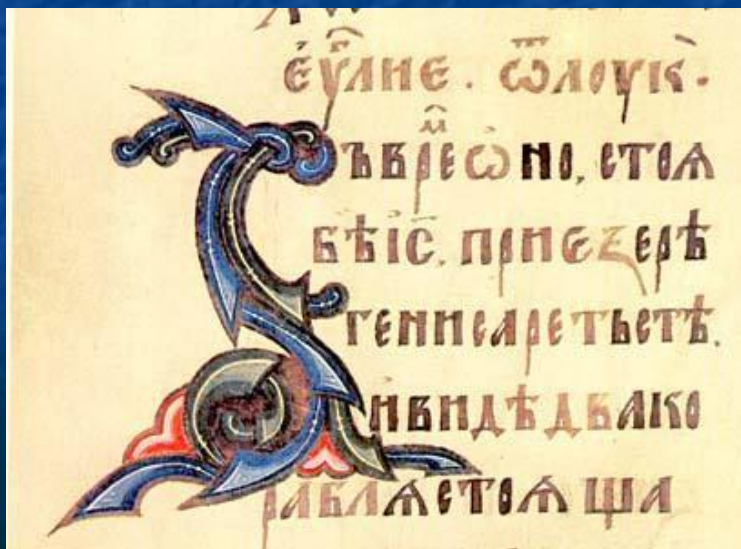 еѵ҃лїе. ѿлоук҃.
ъвреⷨѡно, стоѧ
бѣіс҃. приєзерѣ
генисаретьстѣ.
ивидѣдвако
раблѧстоѧща